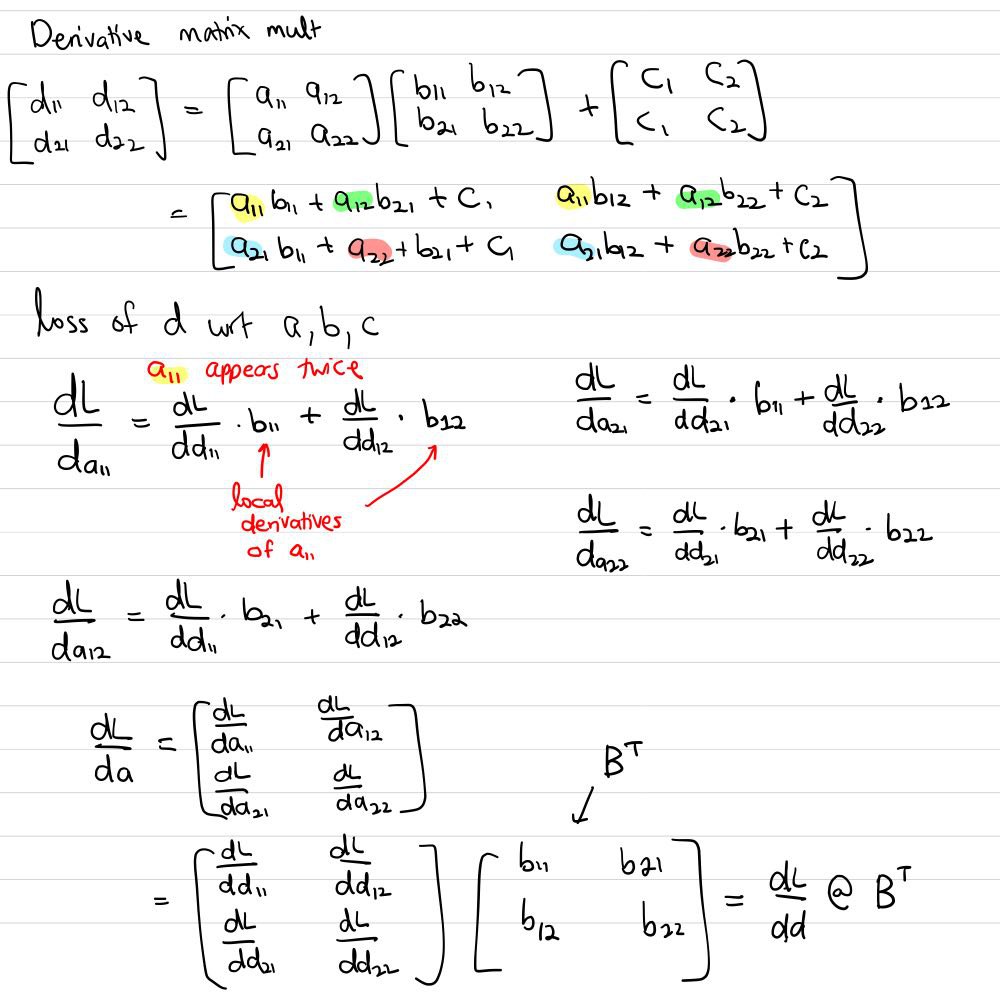 Derivative matrix mult
[d₁₁ d₁₂; d₂₁ d₂₂] = [a₁₁ a₁₂; a₂₁ a₂₂] [b₁₁ b₁₂; b₂₁ b₂₂] + [C₁ C₂; C₁ C₂]
= [a₁₁b₁₁ + a₁₂b₂₁ + C₁   a₁₁b₁₂ + a₁₂b₂₂ + C₂;
a₂₁b₁₁ + a₂₂ + b₂₁ + C₁   a₂₁b₁₂ + a₂₂b₂₂ + C₂]
loss of d wrt a, b, c
a₁₁ appears twice
dL/da₁₁ = dL/dd₁₁ · b₁₁ + dL/dd₁₂ · b₁₂
local
derivatives
of a₁₁
dL/da₁₂ = dL/dd₁₁ · b₂₁ + dL/dd₁₂ · b₂₂
dL/da₂₁ = dL/dd₂₁ · b₁₁ + dL/dd₂₂ · b₁₂
dL/da₂₂ = dL/dd₂₁ · b₂₁ + dL/dd₂₂ · b₂₂
dL/da = [dL/da₁₁ dL/da₁₂; dL/da₂₁ dL/da₂₂]
Bᵀ
= [dL/dd₁₁ dL/dd₁₂; dL/dd₂₁ dL/dd₂₂] [b₁₁ b₂₁; b₁₂ b₂₂] = dL/dd @ Bᵀ